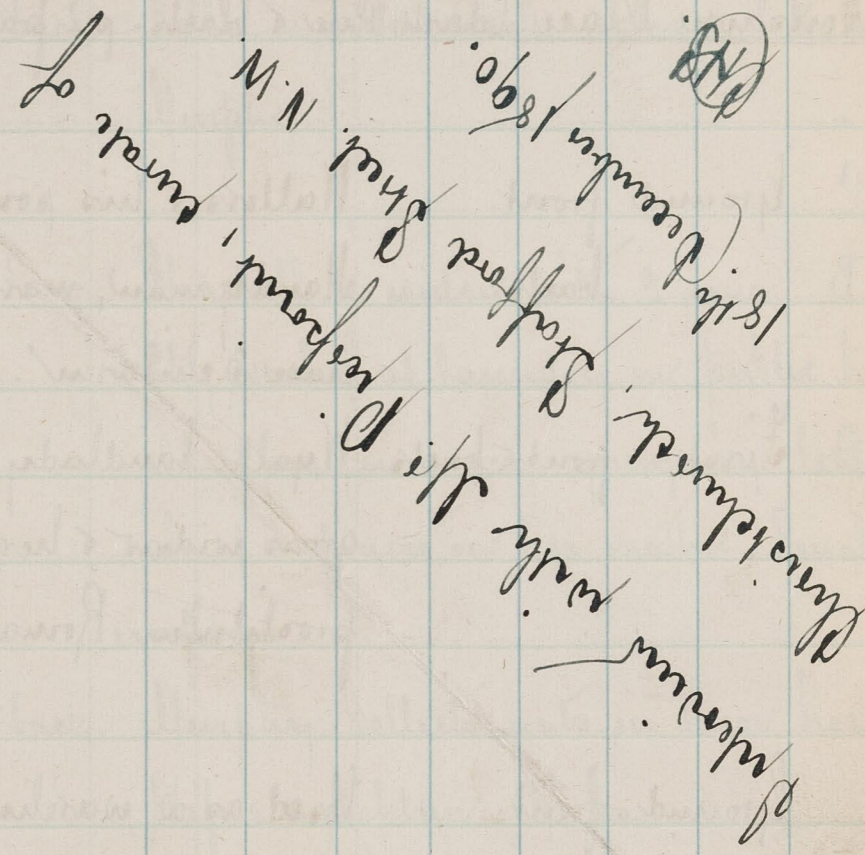 Interview with Mr. curate of
Christchurch, Stafford Street. N.W.
18th December 1890.